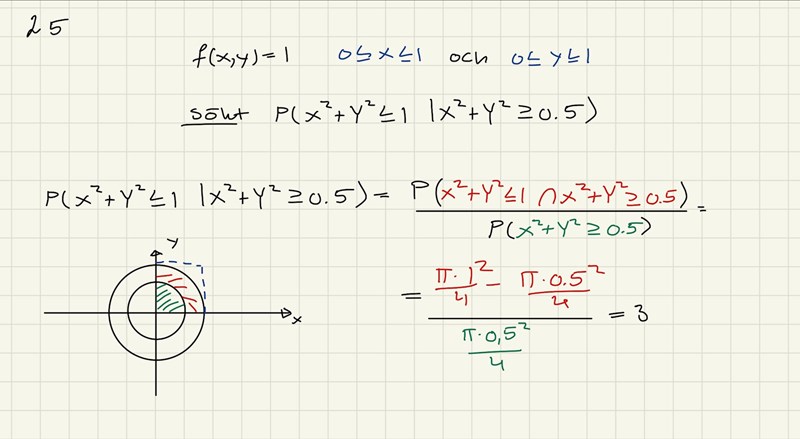 25
f(x,y)=1 0≤x≤1 och 0≤y≤1
sökt P(x²+Y²≤1 |x²+Y²≥0.5)
P(x²+Y²≤1 |x²+Y²≥0.5) = P(x²+Y²≤1 ∩ x²+Y²≥0.5) / P(x²+Y²≥0.5) =
y
x
= (π·1²/4 − π·0.5²/4) / (π·0,5²/4) = 3